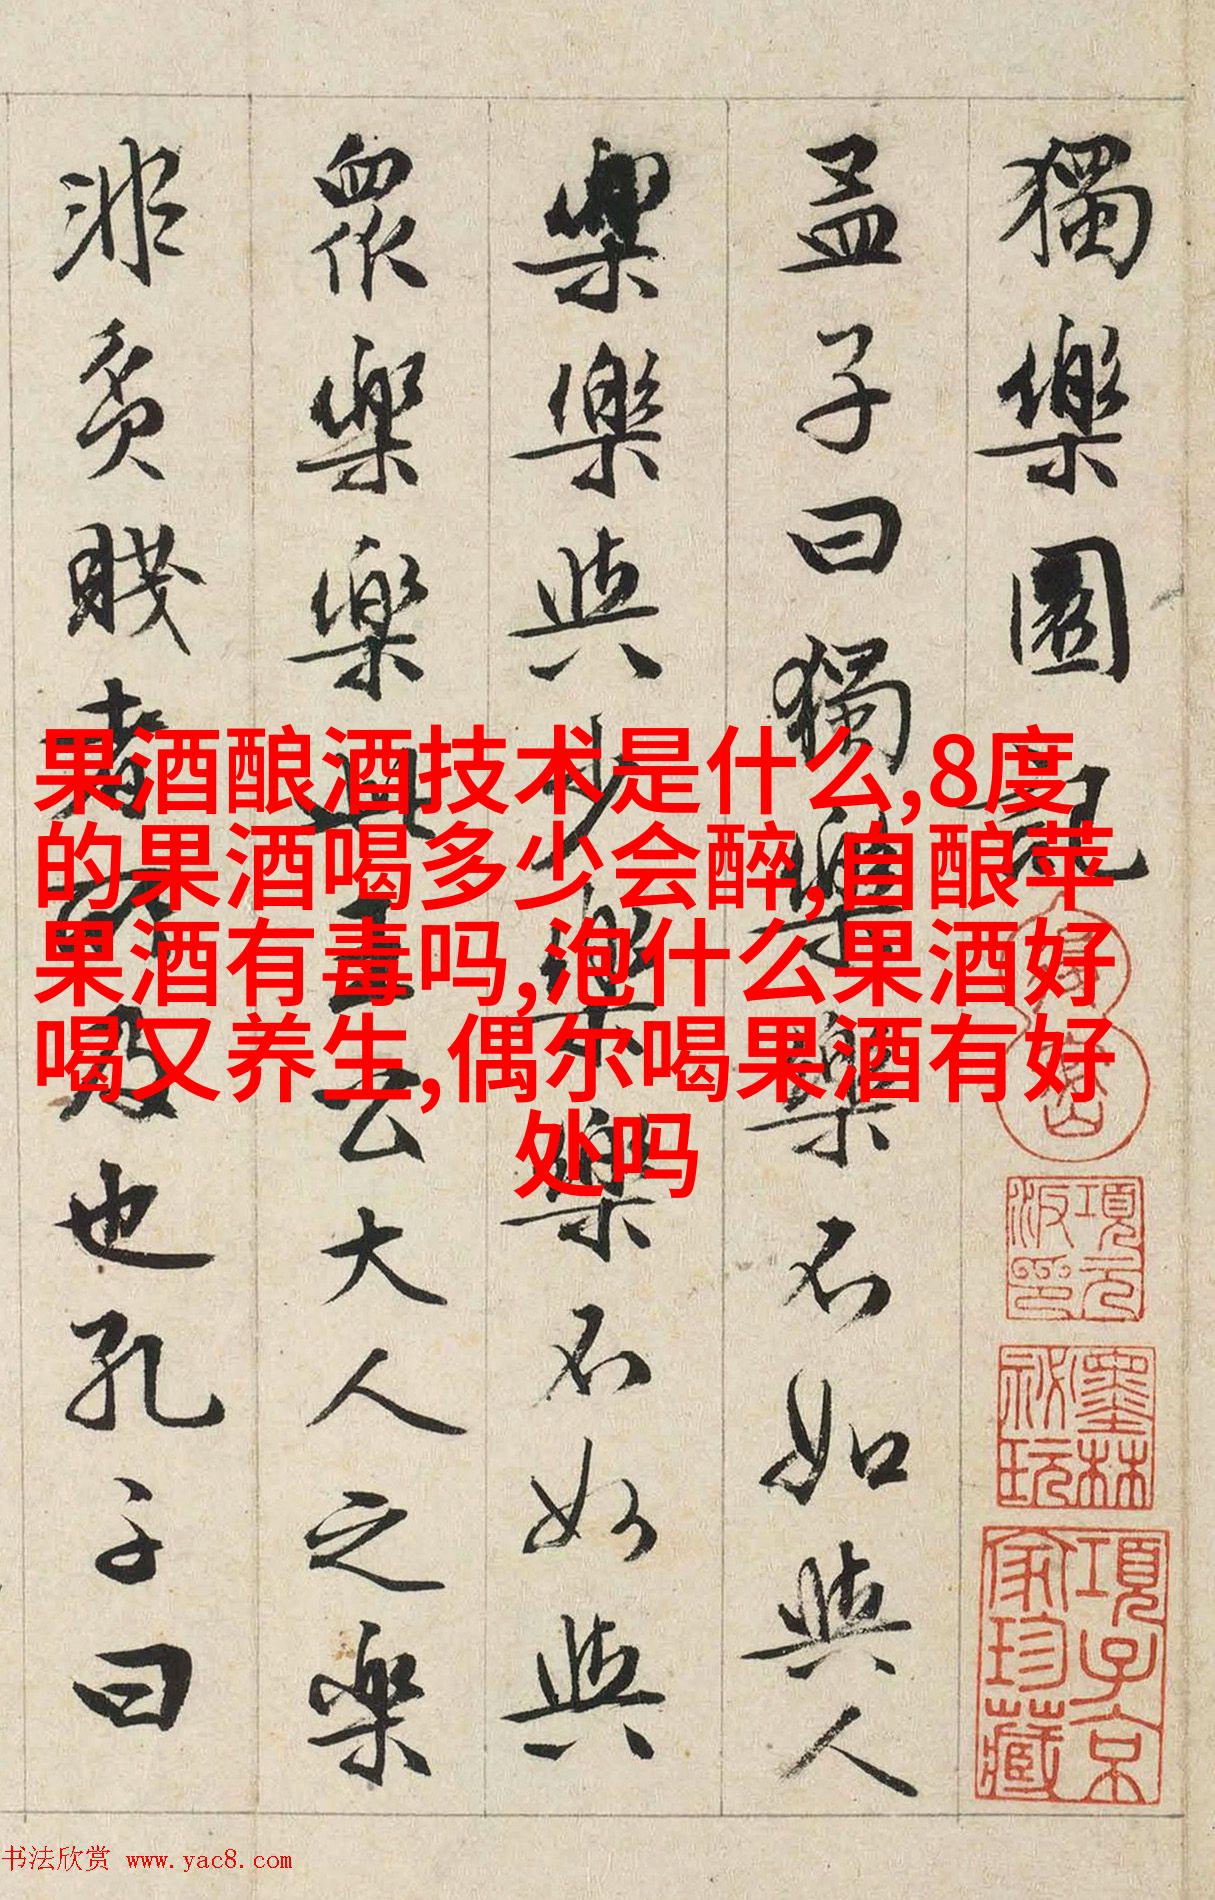 獨樂園記
孟子曰獨樂樂不如與人
樂樂與少樂樂不如與
眾樂樂此王公大人之樂
非貧賤者所及也孔子曰
果酒酿酒技术是什么,8度
的果酒喝多少会醉,自酿苹
果酒有毒吗,泡什么果酒好
喝又养生,偶尔喝果酒有好
处吗
項元汴印
墨林秘玩
項子京家珍藏
书法欣赏 www.yac8.com